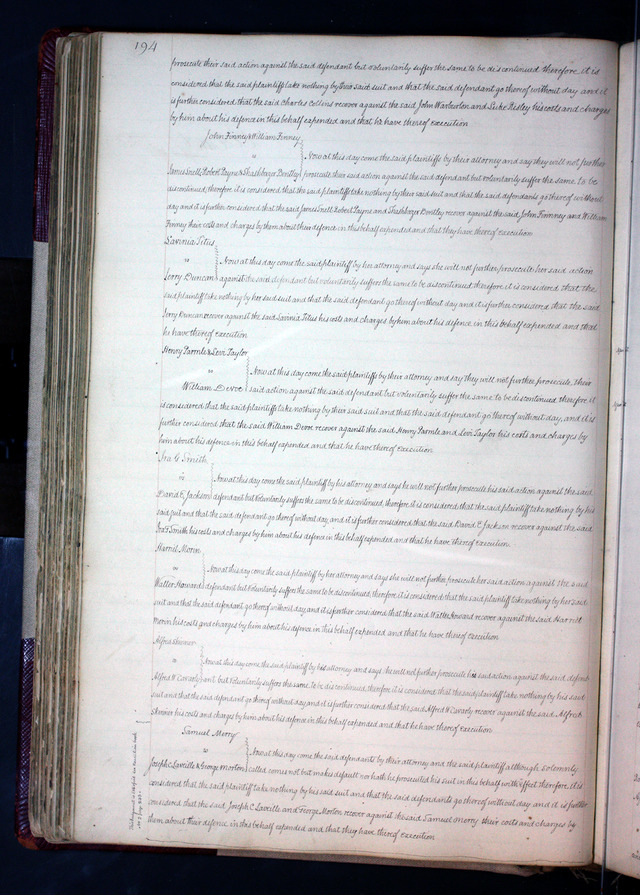 194
prosecute their said action against the said defendant but voluntarily suffer the same to be discontinued therefore, it is
considered that the said plaintiffs take nothing by their said suit and that the said defendant go thereof without day and it
is further considered that the said Charles Collins recover against the said John Warburton and Luke Risley his costs and charges
by him about his defence in this behalf expended and that he have thereof execution
John Finney & William Finney
vs } Now at this day come the said plaintiffs by their attorney and say they will not further
James Snell, Robert Payne & Thashboyer Bentley prosecute their said action against the said defendant but voluntarily suffer the same to be
discontinued, therefore, it is considered that the said plaintiff take nothing by their said suit and that the said defendants go thereof without
day and it is further considered that the said James Snell Robert Payne and Thashboyer Bentley recover against the said, John Finney and William
Finney their costs and charges by them about their defence in this behalf expended and that they have thereof execution
Lavinia Titus
vs } Now at this day come the said plaintiff by her attorney and says she will not further prosecute her said action
Jerry Duncan against the said defendant but voluntarily suffers the same to be discontinued therefore it is considered that the
said plaintiff take nothing by her said suit and that the said defendant go thereof without day and it is further considered that the said
Jerry Duncan recover against the said Lavinia Titus his costs and charges by him about his defence in this behalf expended and that
he have thereof execution
Henry Parmle & Levi Taylor
vs } Now at this day come the said plaintiffs by their attorney and say they will not further prosecute, their
William Devoe said action against the said defendant but voluntarily suffer the same to be discontinued therefore it
is considered that the said plaintiffs take nothing by their said suit and that the said defendant go thereof without day, and it is
further considered that the said William Devoe recover against the said Henry Parmle and Levi Taylor his costs and charges by
him about his defence in this behalf expended and that he have thereof execution.
Ira G Smith
vs } Now at this day come the said plaintiff by his attorney and says he will not further prosecute his said action against the said
David E Jackson defendant but voluntarily suffers the same to be discontinued, therefore, it is considered that the said plaintiff take nothing by his
said suit and that the said defendant go thereof without day, and it is further considered that the said David E Jackson recover against the said
Ira G Smith his costs and charges by him about his defence in this behalf expended and that he have thereof execution.
Harriet Morin
vs } Now at this day come the said plaintiff by her attorney and says she will not further prosecute her said action against the said
Walter Howard defendant but voluntarily suffers the same to be discontinued, therefore it is considered that the said plaintiff take nothing by her said
suit and that the said defendant go thereof without day, and it is further considered that the said Walter Howard recover against the said Harriet
Morin his costs and charges by him about his defence in this behalf expended and that he have thereof execution
Alfred Skinner
vs } Now at this day come the said plaintiff by his attorney and says he will not further prosecute his said action against the said defend
Alfred W Caverly ant but voluntarily suffers the same to be discontinued, therefore it is considered that the said plaintiff take nothing by his said
suit and that the said defendant go thereof without day, and it is further considered that the said Alfred W Caverly recover against the said Alfred
Skinner his costs and charges by him about his defence in this behalf expended and that he have thereof execution.
Samuel Morry
vs } Now at this day come the said defendants by their attorney and the said plaintiff although solemnly
Joseph C Laveille & George Morton called comes not but makes default nor hath he prosecuted his suit in this behalf with effect therefore, it is
considered that the said plaintiff take nothing by his said suit and that the said defendants go thereof without day and it is further
considered that the said Joseph C Laveille and George Morton recover against the said Samuel Morry their costs and charges by
them about their defence in this behalf expended and that they have thereof execution